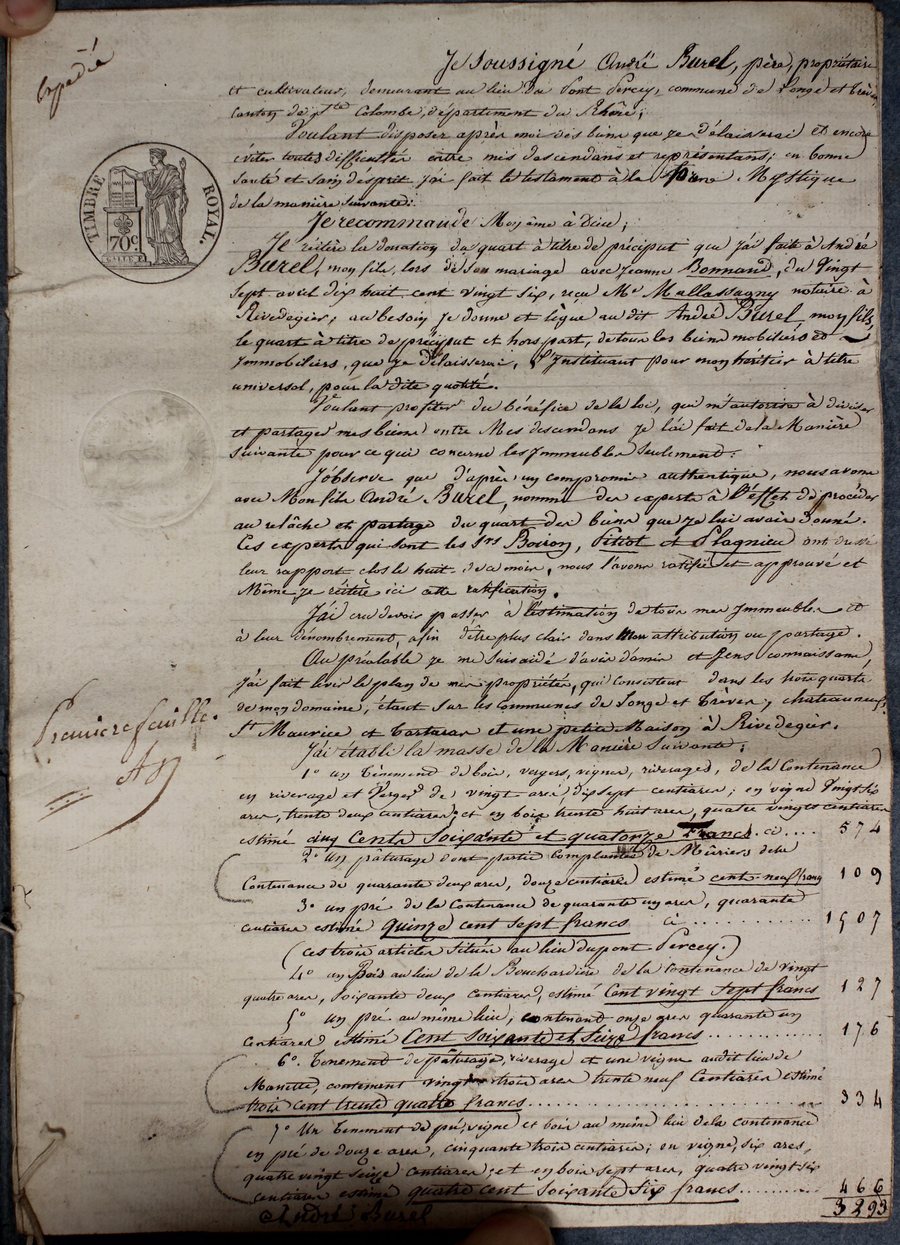 Expédié
TIMBRE ROYAL.
70c
Je soussigné André Burel, père, propriétaire
et cultivateur, demeurant au lieu du Pont Percey, commune de Longe et Trèves,
canton de Ste Colombe, département du Rhône;
Voulant disposer après moi des biens que je délaisserai et encore
éviter toutes difficultés entre mes descendans et représentans; en bonne
santé et sain d'esprit j'ai fait le testament à la forme Mystique
de la manière suivante:
Je recommande Mon âme à Dieu;
Je réitère la donation du quart à titre de préciput que j'ai faite à André
Burel, mon fils, lors de son mariage avec Jeanne Bonnand, du Vingt
Sept avril dix huit cent vingt six, reçu Me Mallassagny notaire à
Rivedegier; au besoin je donne et lègue au dit André Burel mon fils,
le quart à titre de préciput et hors part, de tous les biens mobiliers et
Immobiliers, que je délaisserai, l'Instituant pour mon héritier à titre
universel, pour la dite quotité.
Voulant profiter du bénéfice de la loi, qui m'autorise à diviser
et partager mes biens entre Mes descendans je l'ai fait de la Manière
suivante pour ce qui concerne les Immeubles seulement.
J'observe que d'après un compromis authentique, nous avons
avec Mon fils André Burel, nommé des experts à l'effet de procéder
au relâche et partage du quart des biens que je lui avais donné.
Ces experts qui sont les Srs Boiron, Pitiot & Plagnieu ont dressé
leur rapport clos le huit de ce mois, nous l'avons ratifié et approuvé et
Même je réitère ici cette ratification.
J'ai cru devoir passer à l'estimation de tous mes Immeubles et
à leur dénombrement, afin d'être plus clair dans mon attribution ou partage.
Au préalable je me suis aidé d'avis d'amis et Gens connaissans,
J'ai fait lever le plan de mes propriétés, qui consistent dans les trois quarts
de mon domaine, étant sur les communes de Longe et Trèves, chateauneuf,
St Maurice et Tartaras et une petite Maison à Rivedegier.
J'ai établi la masse de la Manière Suivante:
Première feuille.
1o un Tènement de bois, vergers, vignes, riverages, de la Contenance
en riverage et Verger de vingt ares dix sept centiares; en vigne Vingt six
ares, trente deux centiares; et en bois trente huit ares, quatre vingts centiares
estimé cinq Cents Soixante et quatorze Francs ci .... 574
2o Un pâturage dont partie complantée de Mûriers de la
Contenance de quarante deux ares, douze centiares estimé cent neuf francs 109
3o un pré de la Contenance de quarante un ares, quarante
centiares estimé Quinze cent sept francs ci ............ 1507
(Ces trois articles situés au lieu du pont Percey.)
4o un Bois au lieu de la Bouchardière de la Contenance de vingt
quatre ares, soixante deux centiares, estimé Cent vingt sept francs 127
5o un pré au même lieu, contenant onze ares quarante un
Centiares estimé Cent Soixante et Seize francs ............ 176
6o Tenement de pâturage, riverage et une vigne au dit lieu de
contenant vingt trois ares trente neuf Centiares estimé
trois cent trente quatre francs ........................ 334
7o Un Tenement de pré, vigne et bois au même lieu de la contenance
en pré de douze ares, cinquante trois centiares; en vigne, six ares,
quatre vingt seize centiares; et en bois sept ares, quatre vingt six
centiares estimé quatre cent Soixante Six francs .......... 466
3293
André Burel